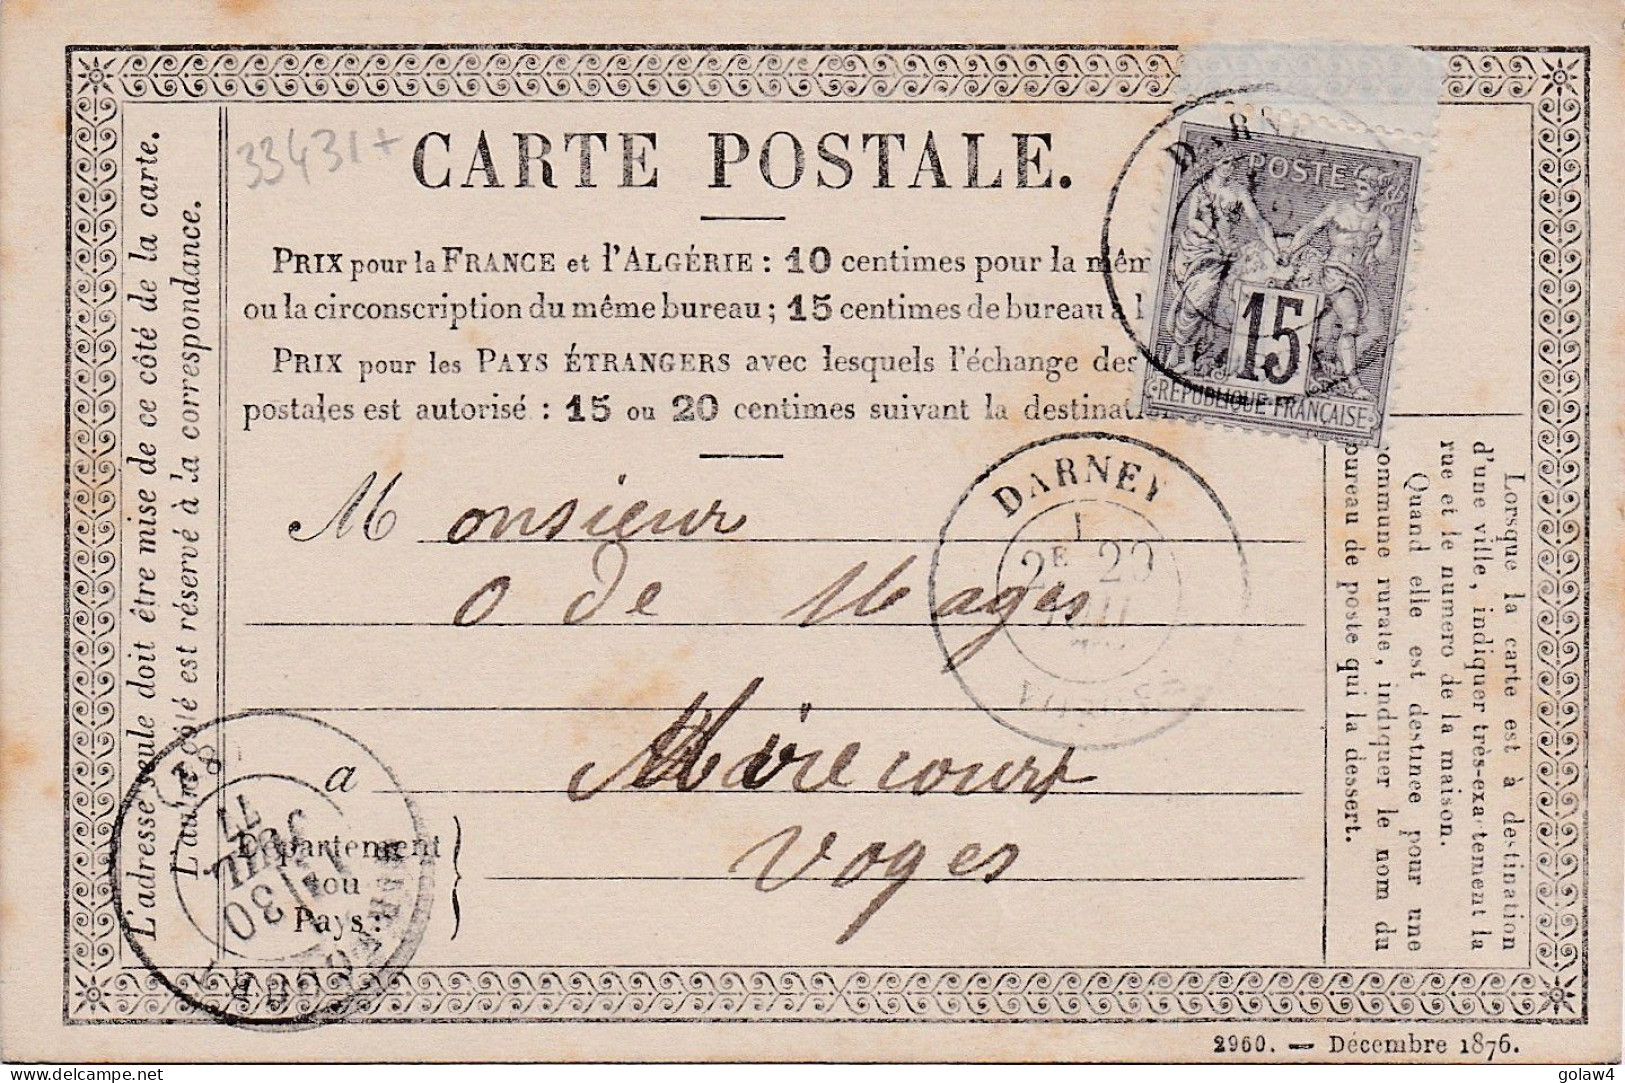 33431+
CARTE POSTALE.
PRIX pour la FRANCE et l'ALGÉRIE : 10 centimes pour la mêm
ou la circonscription du même bureau ; 15 centimes de bureau à l
PRIX pour les PAYS ÉTRANGERS avec lesquels l'échange des
postales est autorisé : 15 ou 20 centimes suivant la destinati
POSTE
15
REPUBLIQUE FRANÇAISE
DARNEY
2E 29
Monsieur
O de Mages
a Mirecourt
Voges
Département
ou
Pays :
L'adresse seule doit être mise de ce côté de la carte.
L'autre côté est réservé à la correspondance.
Lorsque la carte est à destination
d'une ville, indiquer très-exactement la
rue et le numéro de la maison.
Quand elle est destinée pour une
commune rurale, indiquer le nom du
bureau de poste qui la dessert.
30
JUIL
77
2960. — Décembre 1876.
www.delcampe.net
golaw4